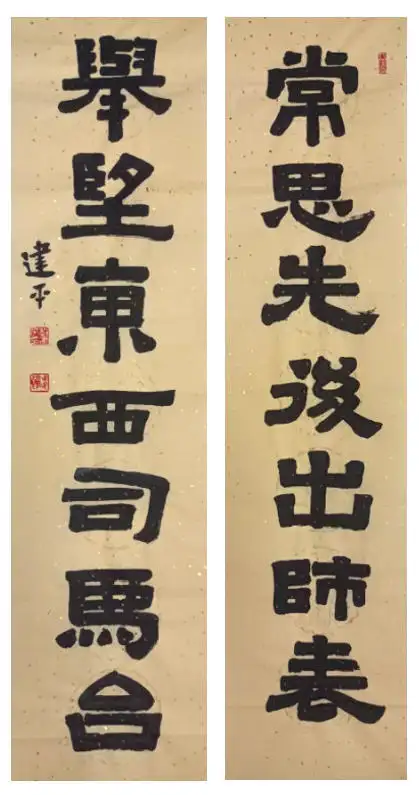 常思先後出師表
舉望東西司馬台
建平